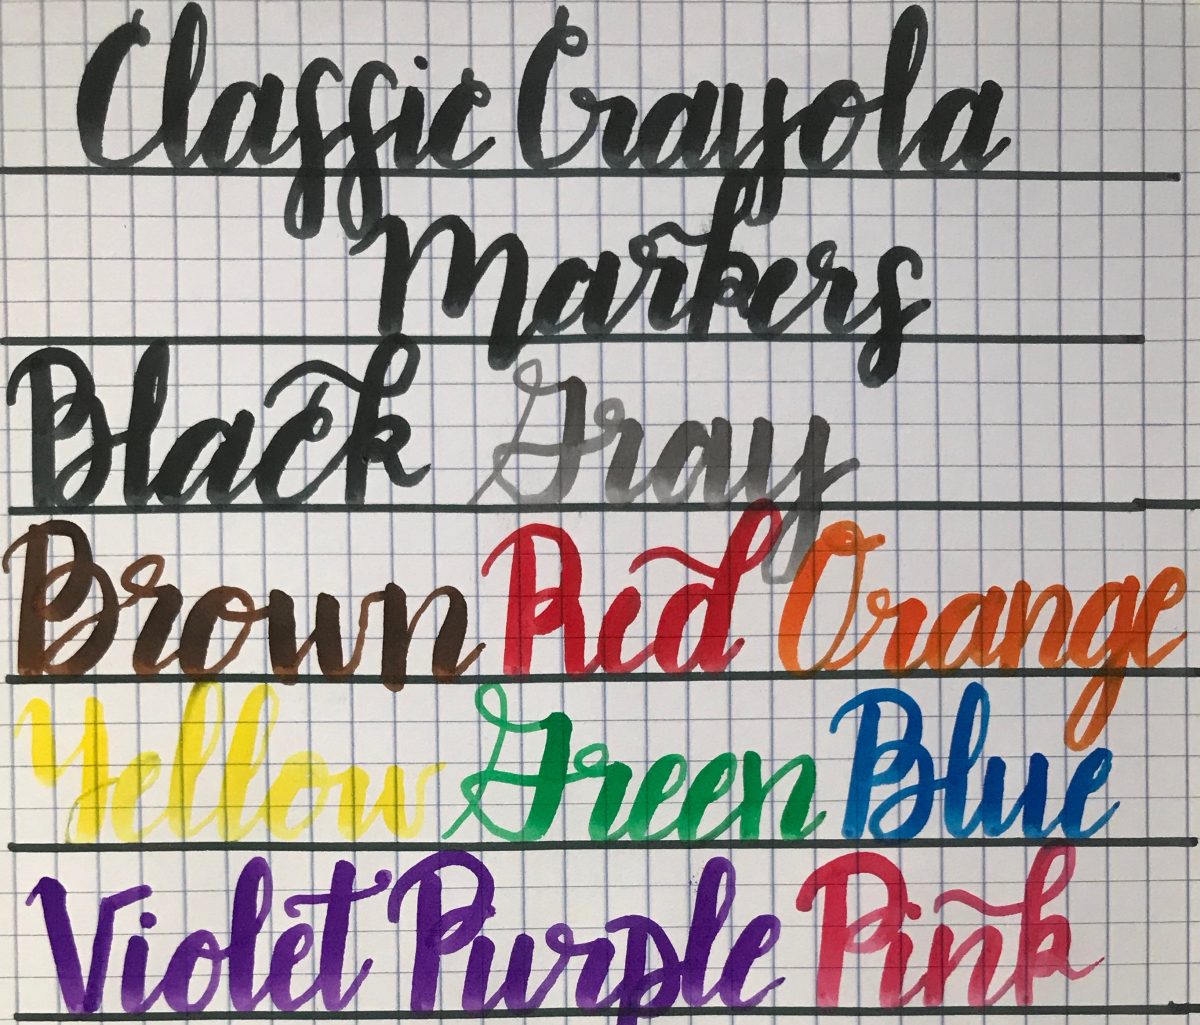 Classic Crayola
Markers
Black Gray
Brown Red Orange
Yellow Green Blue
Violet Purple Pink